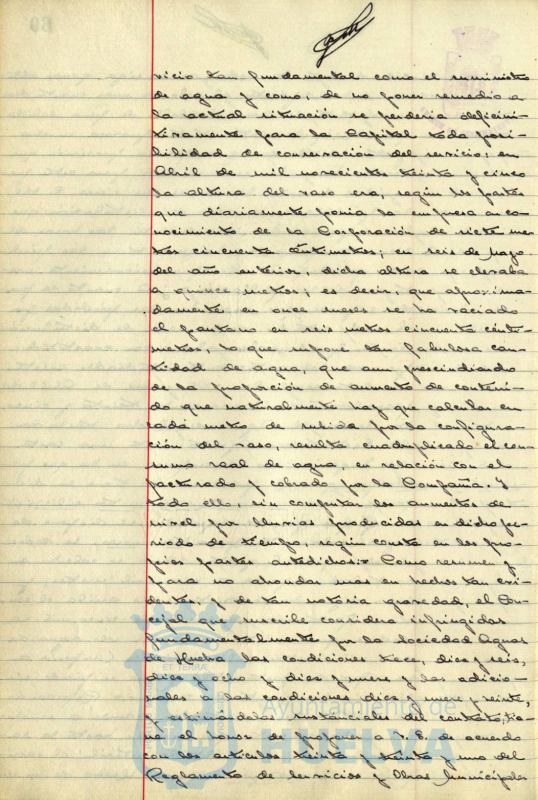 vicio tan fundamental como el suministro
de agua y como, de no poner remedio a
la actual situación se perdería definiti-
tivamente para la Capital toda posi-
bilidad de conservación del servicio; en
Abril de mil novecientos treinta y cinco
la altura del vaso era, según los partes
que diariamente ponía la empresa en co-
nocimiento de la Corporación de siete me-
tros cincuenta centímetros; en seis de Mayo
del año anterior, dicha altura se elevaba
a quince metros; es decir, que aproxima-
damente en once meses se ha vaciado
el pantano en seis metros cincuenta cénti-
metros, lo que supone tan fabulosa can-
tidad de agua, que aun prescindiendo
de la proporción de aumento de conteni-
do que naturalmente hay que calcular en
cada metro de subida por la configura-
ción del vaso, resulta cuadruplicado el con-
sumo real de agua, en relación con el
facturado y cobrado por la Compañía. Y
todo ello, sin computar los aumentos de
nivel por lluvias producidas en dicho pe-
riodo de tiempo, según consta en los pro-
pios partes antedichos:= Como resumen y
para no ahondar mas en hechos tan evi-
dentes y de tan notoria gravedad, el Con-
cejal que suscribe considera infringidos
fundamentalmente por la Sociedad Aguas
de Huelva las condiciones trece, diez y seis,
diez y ocho y diez y nueve y las adicio-
nales a las condiciones diez y nueve y veinte,
y estimándolas sustanciales del contrato, tie-
ne el honor de proponer a V.E. de acuerdo
con los artículos treinta y treinta y uno del
Reglamento de Servicios y Obras Municipales
Ayuntamiento de
HUELVA